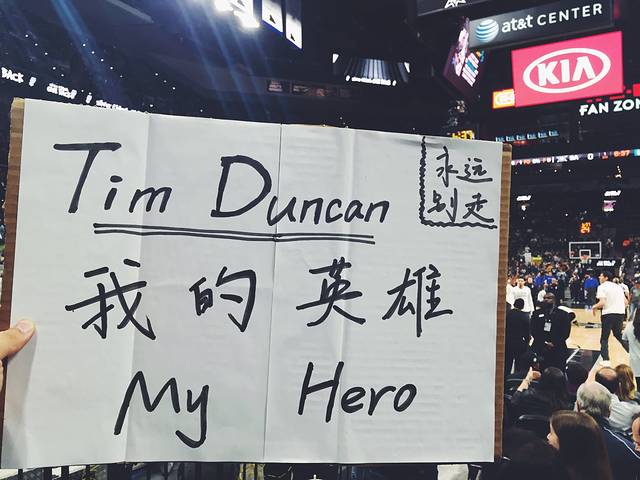 at&t CENTER
KIA
FAN ZON
Tim Duncan
永远
别走
我的英雄
My Hero